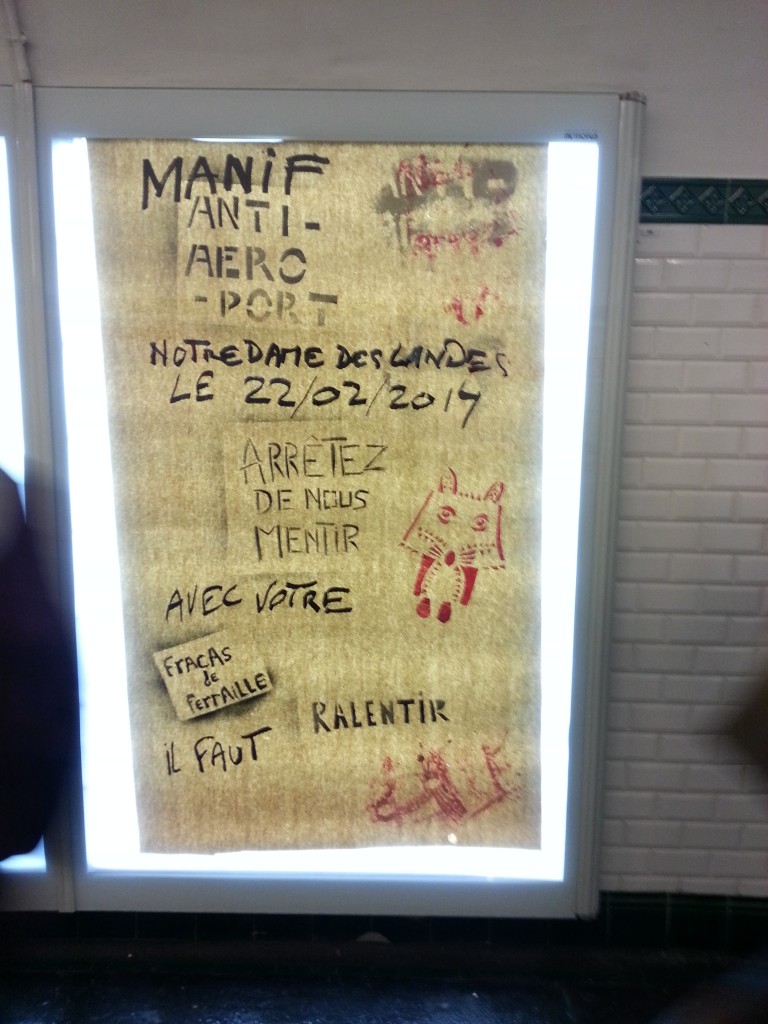 MANIF
ANTI-
AERO
-PORT
NOTRE DAME DES LANDES
LE 22/02/2014
ARRÊTEZ
DE NOUS
MENTIR
AVEC VOTRE
FRACAS
de
FERRAILLE
RALENTIR
IL FAUT